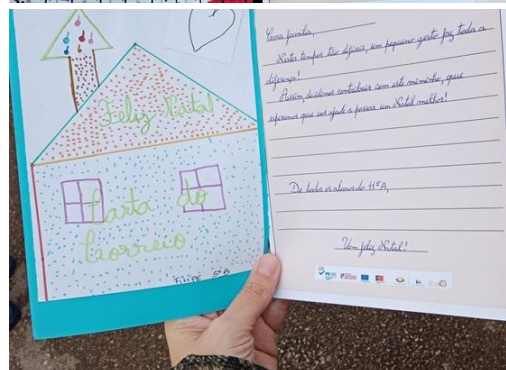 Feliz Natal
Carta do
Correio
FILIPE 5ºB
Cara família,
Nestes tempos tão difíceis, um pequeno gesto faz toda a
diferença!
Assim, decidimos contribuir com este miminho, que
esperamos que vos ajude a passar um Natal melhor!
De todos os alunos do 11ºA,
Um feliz Natal!